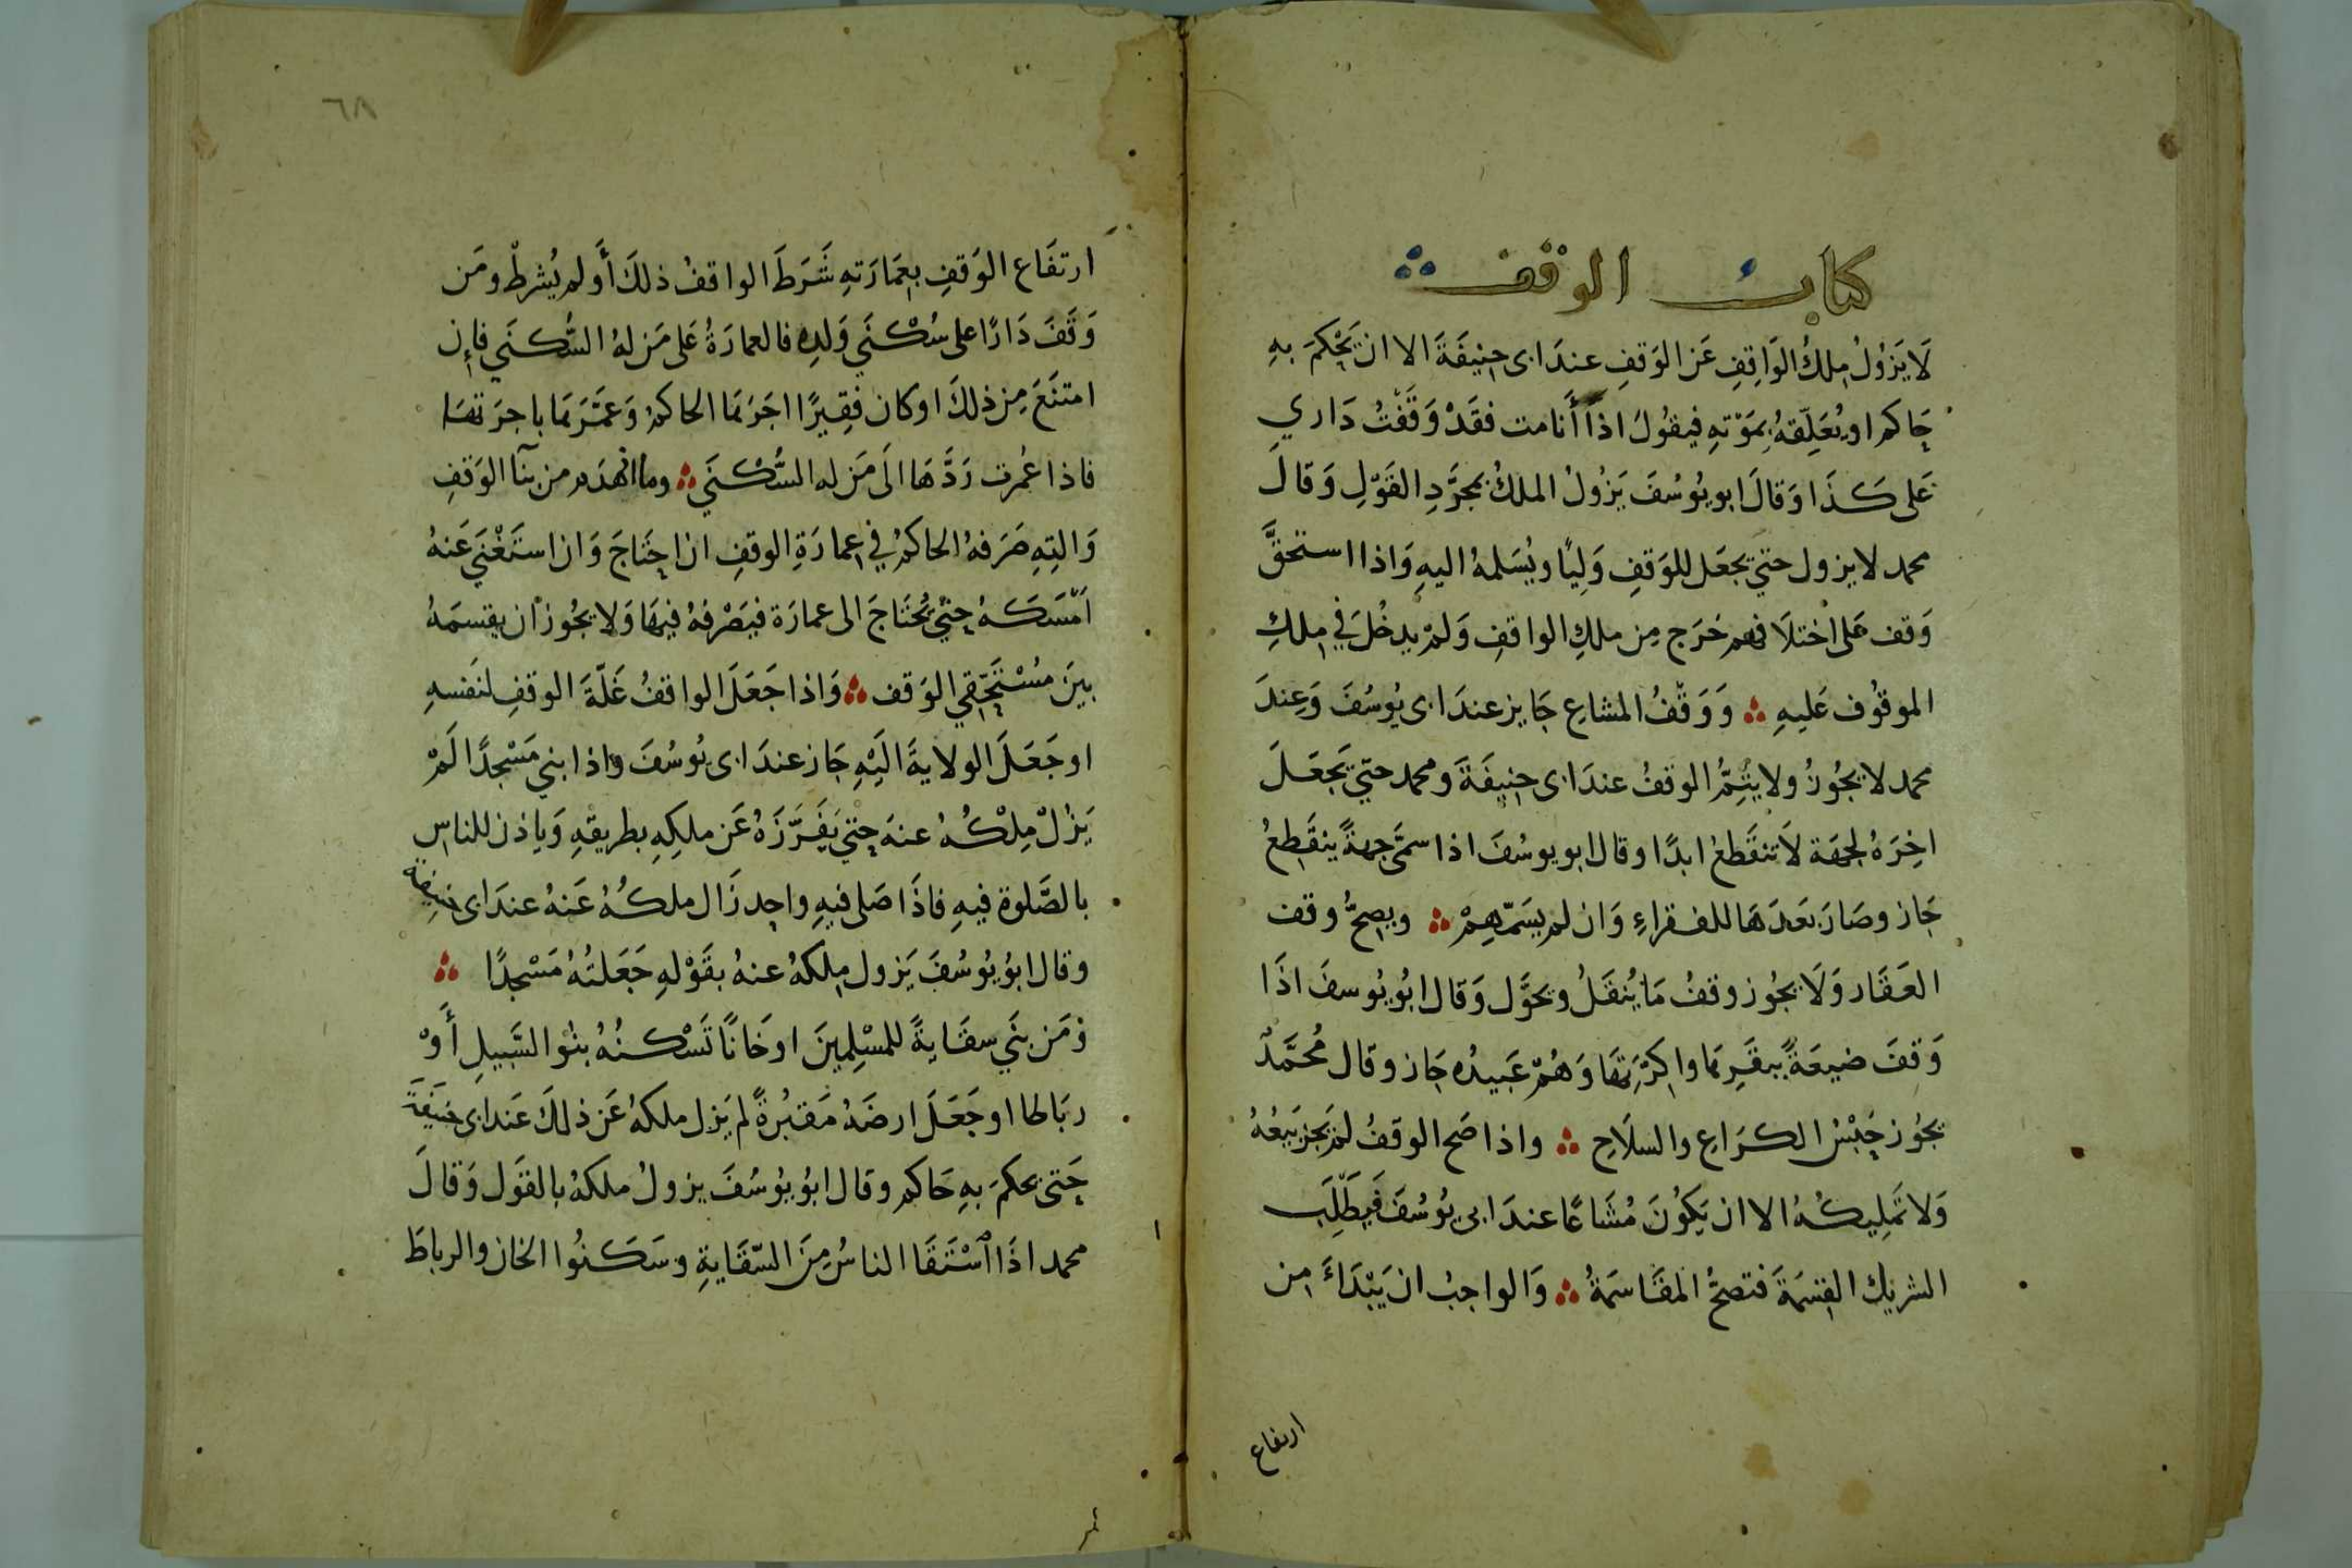 كتاب الوقف
لَا يَزُولُ مِلكُ الوَاقِفِ عَن الوَقفِ عندَ ابى حنيفَةَ الا ان يَحْكمَ بهِ
حَاكم او يُعَلِّقهُ بمَوْتهِ فيقُولُ اذا أَنا مت فقَدْ وَقَفْتُ دَاري
عَلى كَذَا وَقالَ ابو يوُسُفَ يَزُولُ الملكُ بمجَرَّدِ القَوْلِ وَقالَ
محمد لا يزول حتي يجعَل للوَقفِ وَليًا ويُسَلمهُ اليهِ وَاذا استحقَّ
وَقف عَلى اختلَافهم خَرَج مِن ملكِ الواقفِ وَلمْ يدخُلَ في مِلكِ
الموقوُف عَليهِ وَوَقْفُ المشاعِ جَايز عندَ ابى يوُسُفَ وَعِندَ
محمد لا يجُوزُ ولا يَتِمُّ الوقفُ عندَ ابى حنيفَةَ ومحمد حتّي يَجعَلَ
اخِرَهُ لجهَة لَا تنقَطعُ ابدًا وقال ابو يوسُفَ اذا سمَّى جهةً ينقَطِعُ
جَاز وصَارَ بَعدَهَا للفقراءِ وَان لم يسَمّهِمْ ويصِحُّ وقف
العَقَار وَلَا يجُوز وقفُ مَا يُنقَلُ ويحوَّل وَقال ابُو يوُسفَ اذَا
وَقفَ ضيعَةً ببقَرِها واكَرَتهَا وَهُمْ عَبيدُه جَاز وقال مُحمَّدٌ
يجُوز حَبْسُ الكرَاعِ والسلَاحِ واذا صَح الوقفُ لم يَجز بَيعُهُ
وَلا تَمليكُهُ الا ان يَكوُنَ مُشَاعًا عندَ ابى يوُسُفَ فَيَطلَب
الشريك القِسْمَةَ فتصحُّ المقَاسَمةُ وَالواجبُ ان يَبْدَاءَ مِن
ارتفاع
٦٨
ارتفَاع الوَقفِ بعمَارَتهِ شَرَطَ الواقفُ ذلكَ أَو لم يُشرطْ ومَن
وَقَفَ دَارًا على سُكْنَي وَلدِه فالعمارَةُ عَلى مَن لهُ السُّكنَي فإن
امتنَعَ مِن ذلكَ او كان فقِيرًا اجَرَها الحاكمُ وَعمَّرَها باجرَتهَا
فاذا عُمرت رَدَّهَا الَى مَن له السُّكْنَي وما انهدَم من بنآ الوَقفِ
وَالتِهِ صَرَفهُ الحاكمُ في عمارَةِ الوقفِ ان احتَاجَ وَان استَغْنَي عَنهُ
اَمْسَكَهُ حتّي يُحتَاجَ الى عمارَة فيَصْرفهُ فيهَا وَلا يجُوز ان يقسمَهُ
بينَ مسْتَحِقي الوَقف وَاذا جَعَلَ الواقفُ غَلّةَ الوقفِ لنَفسهِ
او جَعَلَ الولايَةَ اليْهِ جَاز عندَ ابى يوُسُفَ واذا بني مَسْجدًا لَمْ
يَزلْ مِلْكُهُ عنهَ حتّي يَفرَزَهُ عَن ملكِهِ بطريقهِ وَياذن للناسِ
بالصَّلوة فيهِ فاذَا صَلى فيهِ واحد زَال ملكُهُ عَنهُ عندَ ابى حنيفة
وقال ابُو يوُسُفَ يَزول مِلكهُ عنهُ بقَوْلهِ جَعَلتُهُ مَسْجدًا
وَمَن بنَي سقَايةً للمسْلِمينَ او خَانًا تَسْكنُهُ بنُوا السَّبيلِ أَوْ
ربَاطا او جَعَلَ ارضَهُ مَقبُرةً لم يَزل ملكهُ عَن ذلكَ عَندَ ابى حنيفَةَ
حَتى يحكمَ بهِ حَاكم وقال ابُو يوُسُفَ يزولُ ملكهُ بالقوَل وَقالَ
محمد اذَا ٱسْتَقَا الناسُ مِنَ السّقَايةِ وسَكنُوا الخان والرباطَ